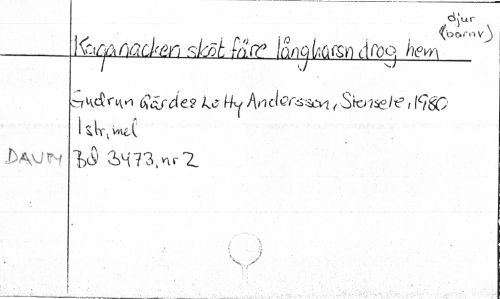 djur
(barnv)
Kaganacken sköt färe långharsn drog hem
Gudrun Gärde & Lotty Andersson, Stensele, 1980
1 str, mel
DAUM Bd 3473, nr 2